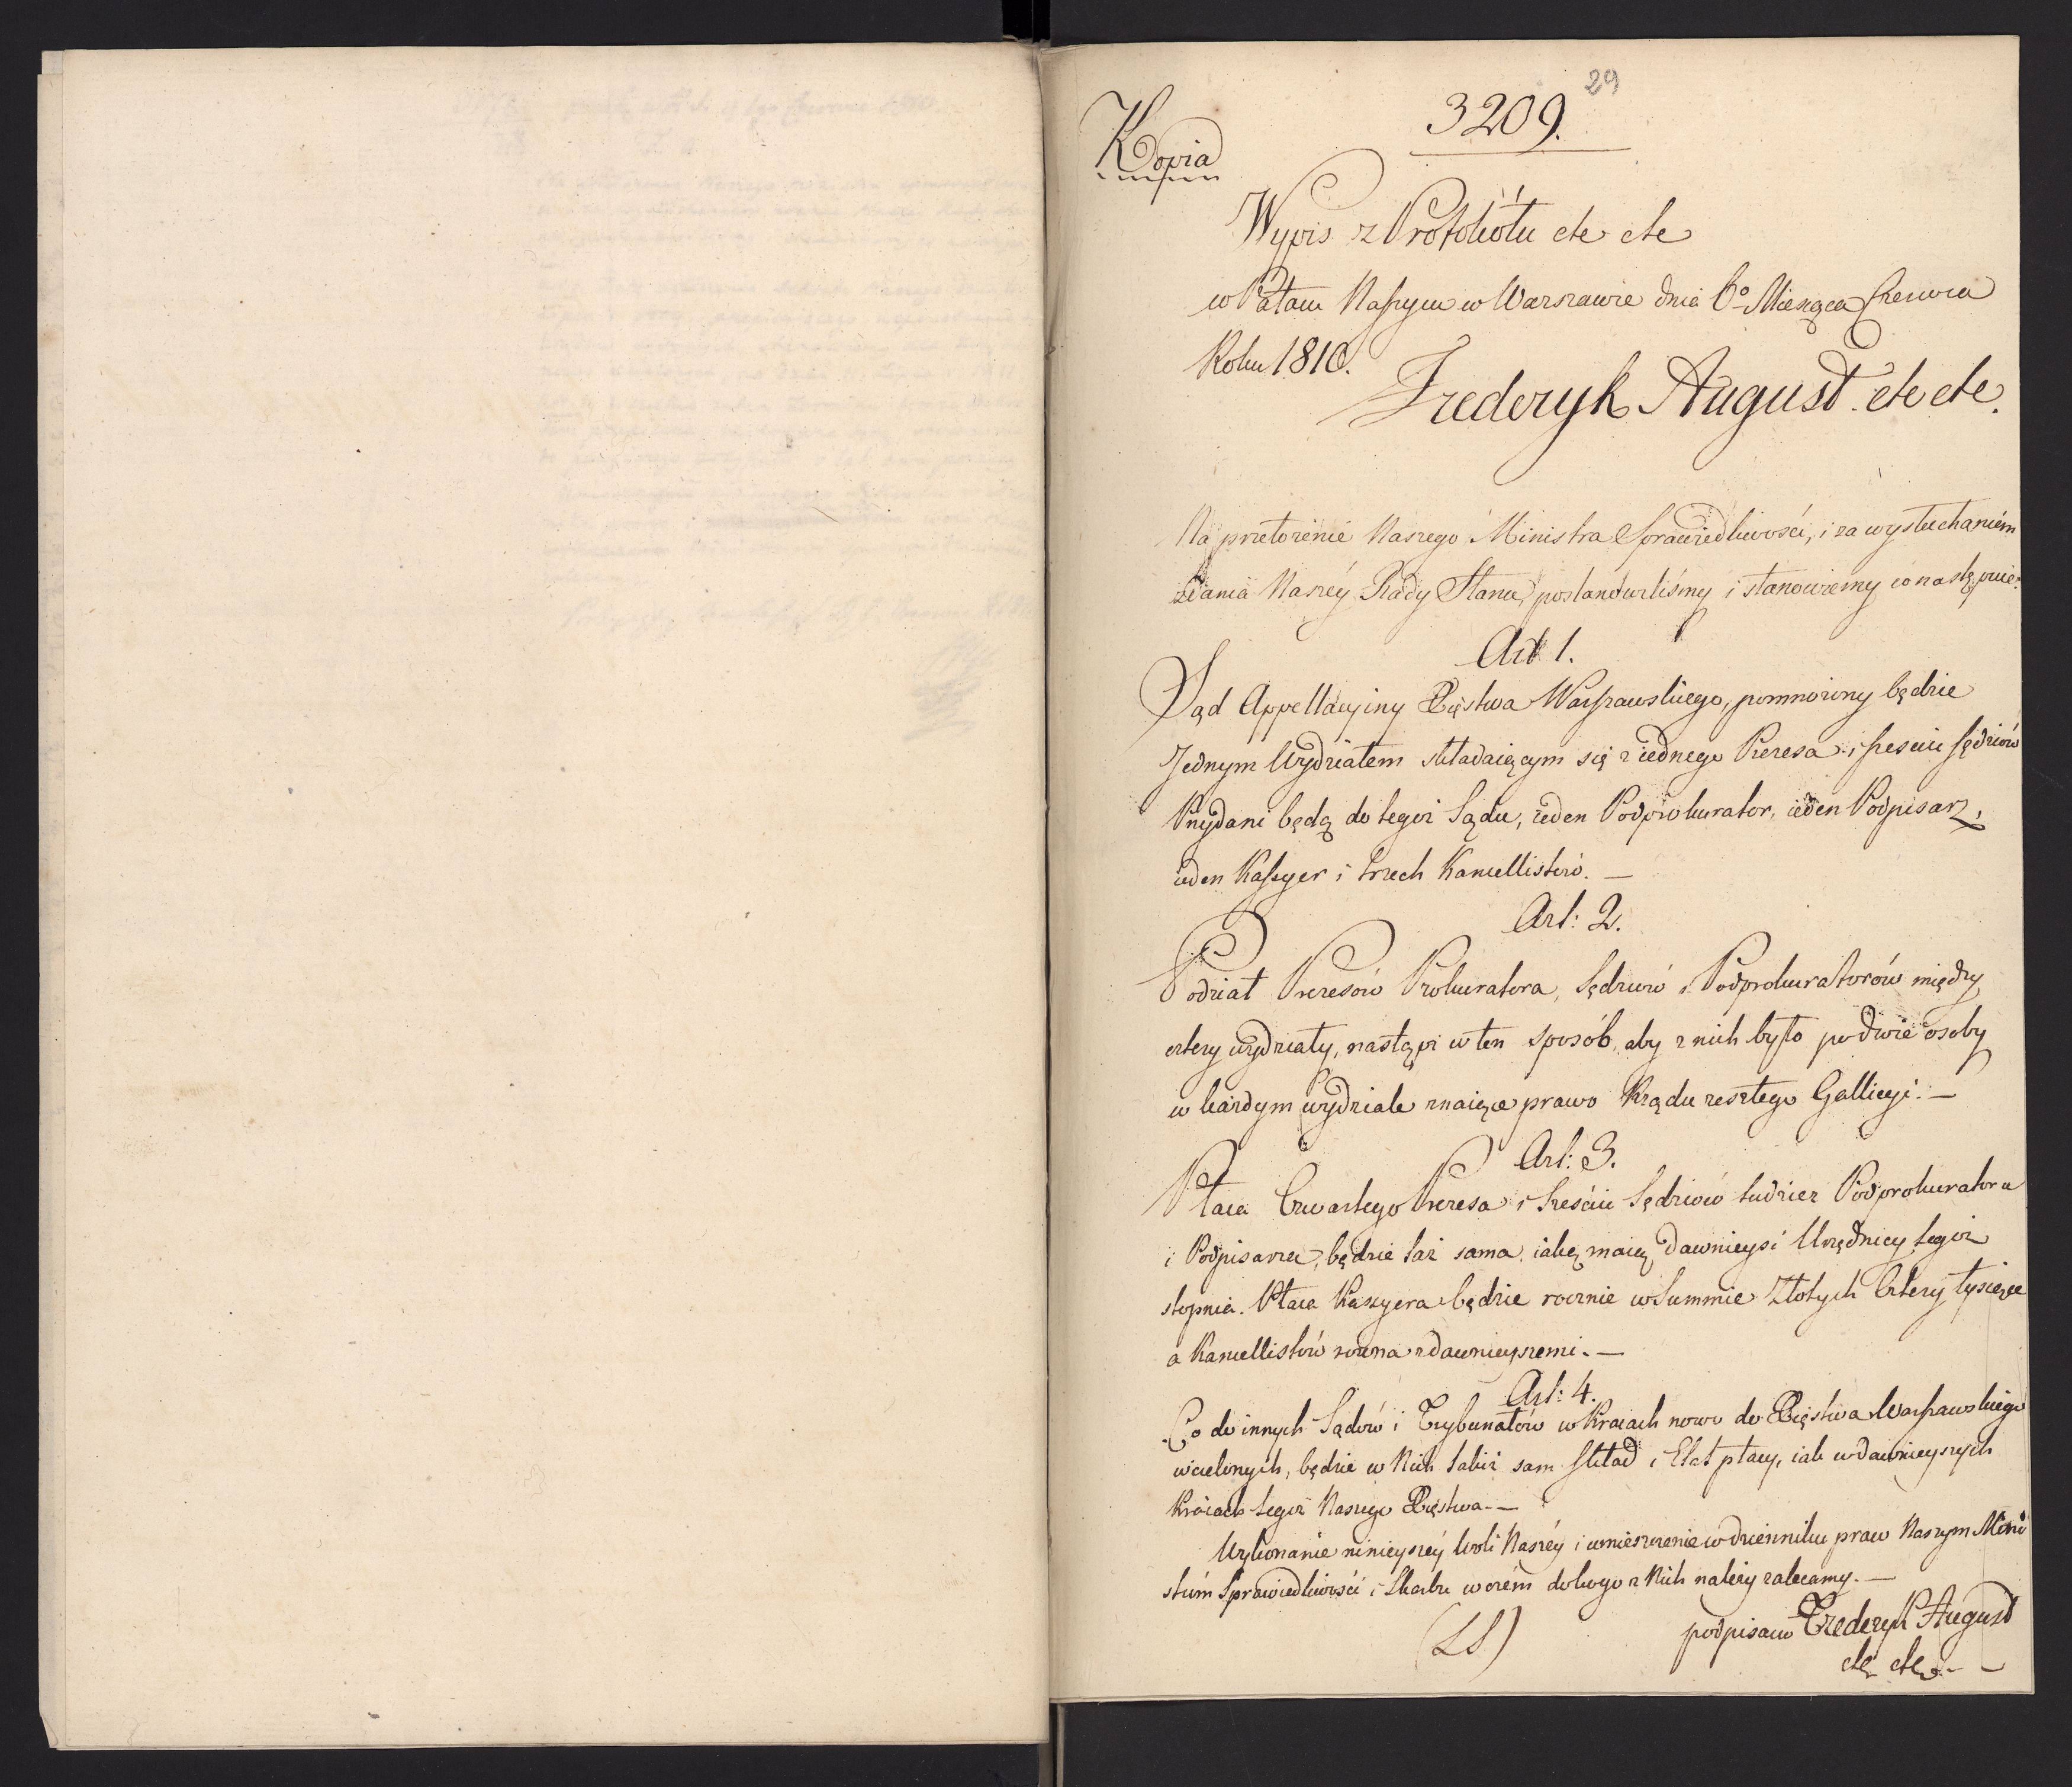 29
3209.
Kopia
Wypis z Protokółu etc etc
w Pałacu Naszym w Warszawie dnia 6º Miesiąca Czerwca
Roku 1810.
Frederyk August etc etc.
Na przełożenie Naszego Ministra Sprawiedliwości, i za wysłuchaniém
zdania Naszéy Rady Stanu, postanowiliśmy i stanowiemy co następuie:
Art 1.
Sąd Appellacyiny Xięstwa Warszawskiego, pomnożony będzie
Jednym Wydziałem składaiącym się z iednego Prezesa i sześciu sędziów
Przydani będą do tegoż Sądu, ieden Podprokurator, ieden Podpisarz,
ieden Kassyer i trzech Kancellistów. —
Art: 2.
Podział Prezesów Prokuratora, Sędziów i Podprokuratorów między
cztery wydziały, nastąpi w ten sposób, aby z nich było po dwie osoby
w każdym wydziale znaiące prawo Rządu zeszłego Gallicyi. —
Art: 3.
Płaca Czwartego Prezesa i Sześciu Sędziów tudzież Podprokuratora
i Podpisarza, będzie taż sama, iaką maią dawnieysi Urzędnicy tegoż
stopnia. Płaca Kassyera będzie rocznie w Summie Złotych Cztery tysiące
a Kancellistów równa z dawnieyszemi. —
Art: 4.
Co do innych Sądów i Trybunałów w Kraiach nowo do Xięstwa Warszawskiego
wcielonych, będzie w Nich takiż sam skład i Etat płacy, iak w dawnieyszych
Kraiach tegoż Naszego Xięstwa. —
Wykonanie ninieyszéy Woli Naszéy i umieszczenie w dzienniku praw Naszym Mini
stróm Sprawiedliwości i Skarbu w czém do kogo z Nich należy zalecamy. —
(LS)
podpisano Frederyk August
etc etc. — —